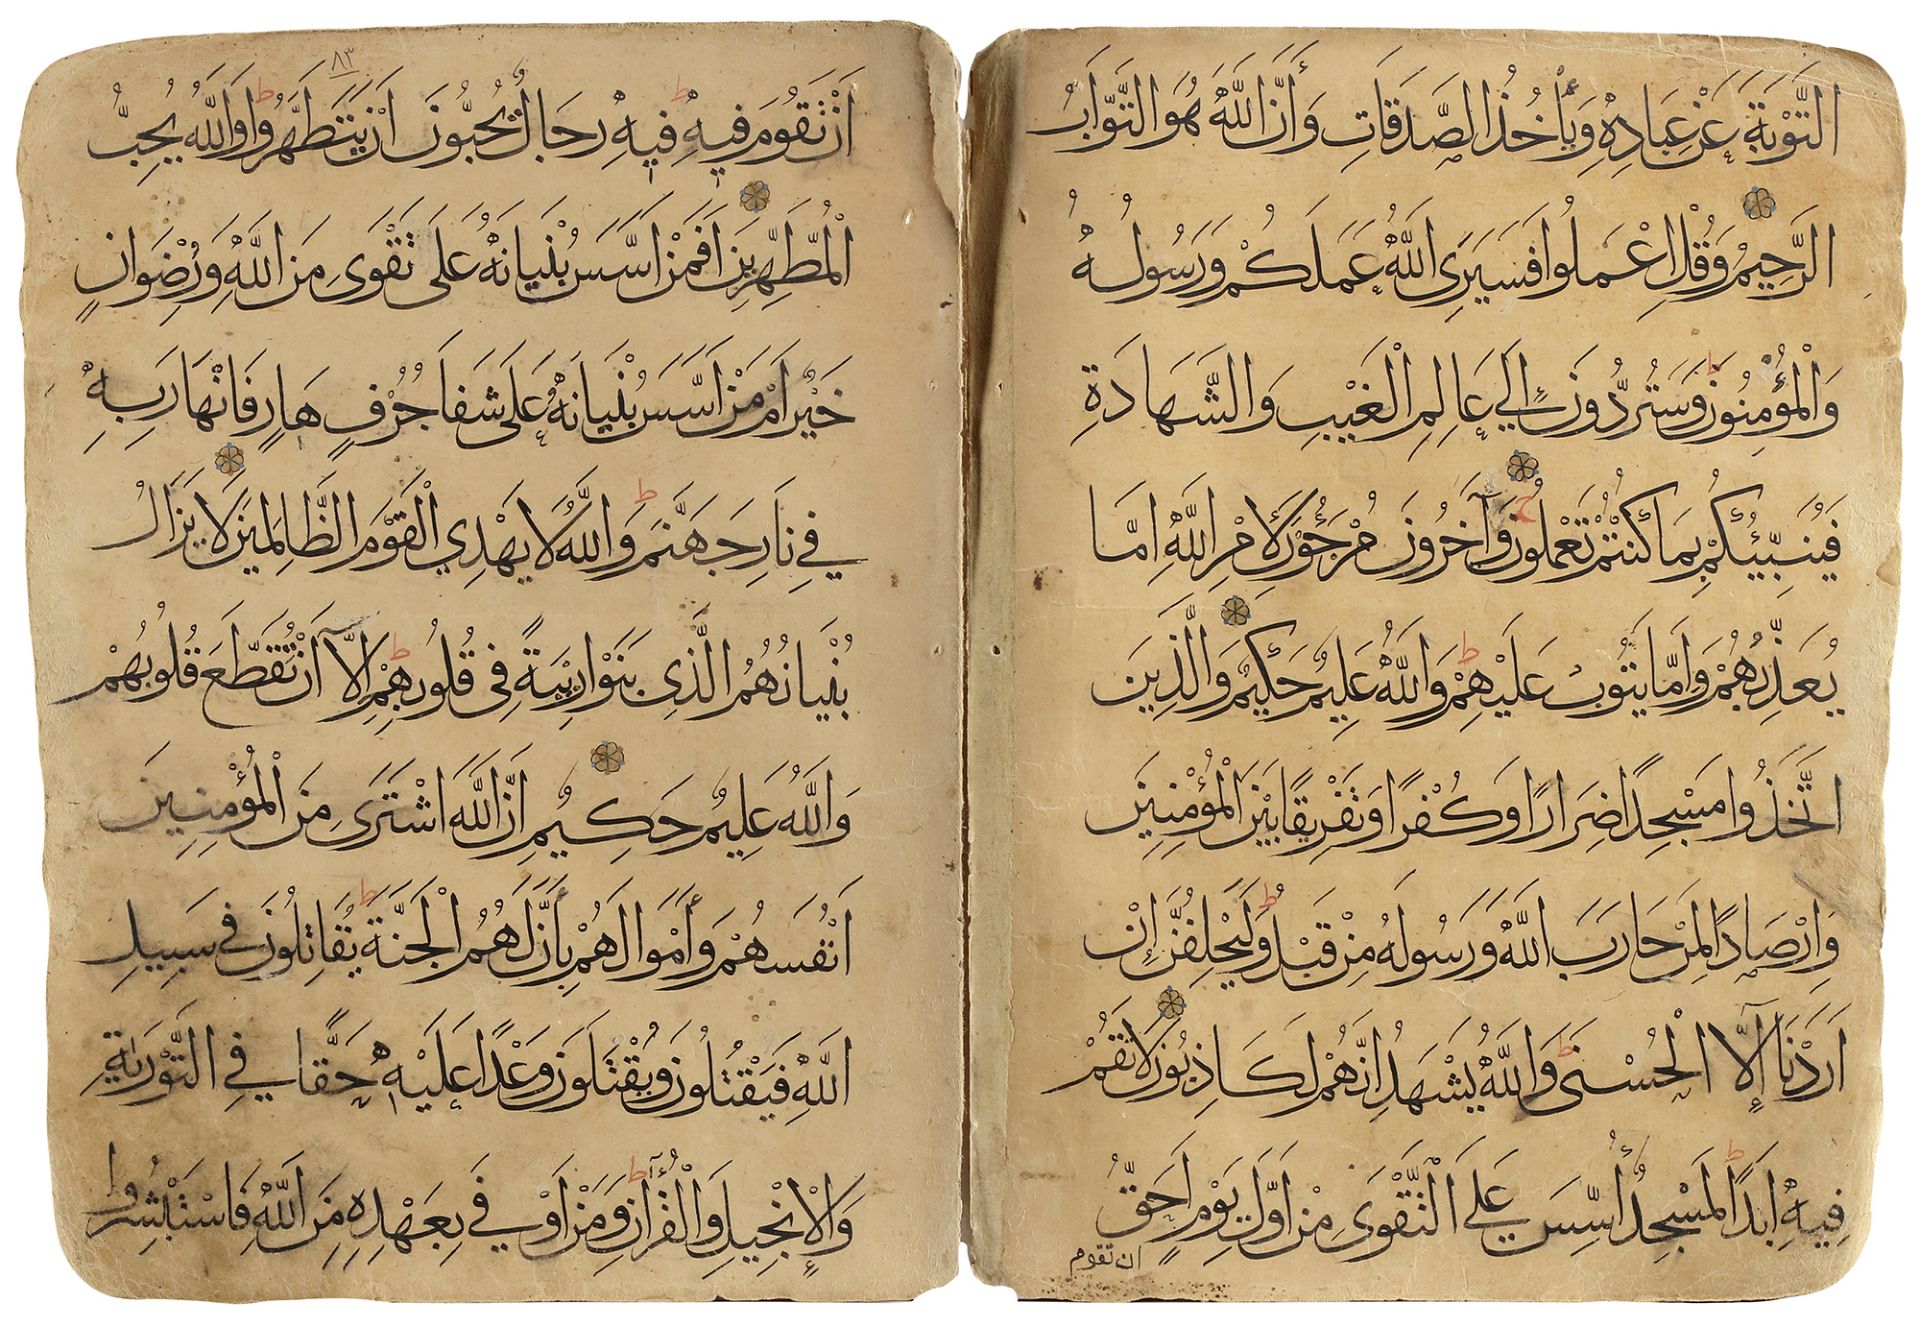 التَّوْبَةَ عَنْ عِبَادِهِ وَيَأْخُذُ الصَّدَقَاتِ وَأَنَّ اللَّهَ هُوَ التَّوَّابُ
الرَّحِيمُ وَقُلِ اعْمَلُوا فَسَيَرَى اللَّهُ عَمَلَكُمْ وَرَسُولُهُ
وَالْمُؤْمِنُونَ وَسَتُرَدُّونَ إِلَى عَالِمِ الْغَيْبِ وَالشَّهَادَةِ
فَيُنَبِّئُكُمْ بِمَا كُنْتُمْ تَعْمَلُونَ وَآخَرُونَ مُرْجَوْنَ لِأَمْرِ اللَّهِ اِمَّا
يُعَذِّبُهُمْ وَاِمَّا يَتُوبُ عَلَيْهِمْ وَاللَّهُ عَلِيمٌ حَكِيمٌ وَالَّذِينَ
اتَّخَذُوا مَسْجِدًا ضِرَارًا وَكُفْرًا وَتَفْرِيقًا بَيْنَ الْمُؤْمِنِينَ
وَاِرْصَادًا لِمَنْ حَارَبَ اللَّهَ وَرَسُولَهُ مِنْ قَبْلُ وَلَيَحْلِفُنَّ إِنْ
اَرَدْنَا إِلَّا الْحُسْنَى وَاللَّهُ يَشْهَدُ اِنَّهُمْ لَكَاذِبُونَ لَا تَقُمْ
فِيهِ اَبَدًا لَمَسْجِدٌ أُسِّسَ عَلَى التَّقْوَى مِنْ اَوَّلِ يَوْمٍ اَحَقُّ
ان تقوم
٨٣
اَنْ تَقُومَ فِيهِ فِيهِ رِجَالٌ يُحِبُّونَ اَنْ يَتَطَهَّرُوا وَاللَّهُ يُحِبُّ
الْمُطَّهِّرِينَ اَفَمَنْ اَسَّسَ بُنْيَانَهُ عَلَى تَقْوَى مِنَ اللَّهِ وَرِضْوَانٍ
خَيْرٌ اَمْ مَنْ اَسَّسَ بُنْيَانَهُ عَلَى شَفَا جُرُفٍ هَارٍ فَانْهَارَ بِهِ
فِي نَارِ جَهَنَّمَ وَاللَّهُ لَا يَهْدِي الْقَوْمَ الظَّالِمِينَ لَا يَزَالُ
بُنْيَانُهُمُ الَّذِي بَنَوْا رِيبَةً فِي قُلُوبِهِمْ إِلَّا اَنْ تَقَطَّعَ قُلُوبُهُمْ
وَاللَّهُ عَلِيمٌ حَكِيمٌ اِنَّ اللَّهَ اشْتَرَى مِنَ الْمُؤْمِنِينَ
اَنْفُسَهُمْ وَأَمْوَالَهُمْ بِأَنَّ لَهُمُ الْجَنَّةَ يُقَاتِلُونَ فِي سَبِيلِ
اللَّهِ فَيَقْتُلُونَ وَيُقْتَلُونَ وَعْدًا عَلَيْهِ حَقًّا فِي التَّوْرَيةِ
وَالْإِنْجِيلِ وَالْقُرْآنِ وَمَنْ اَوْفَى بِعَهْدِهِ مِنَ اللَّهِ فَاسْتَبْشِرُوا